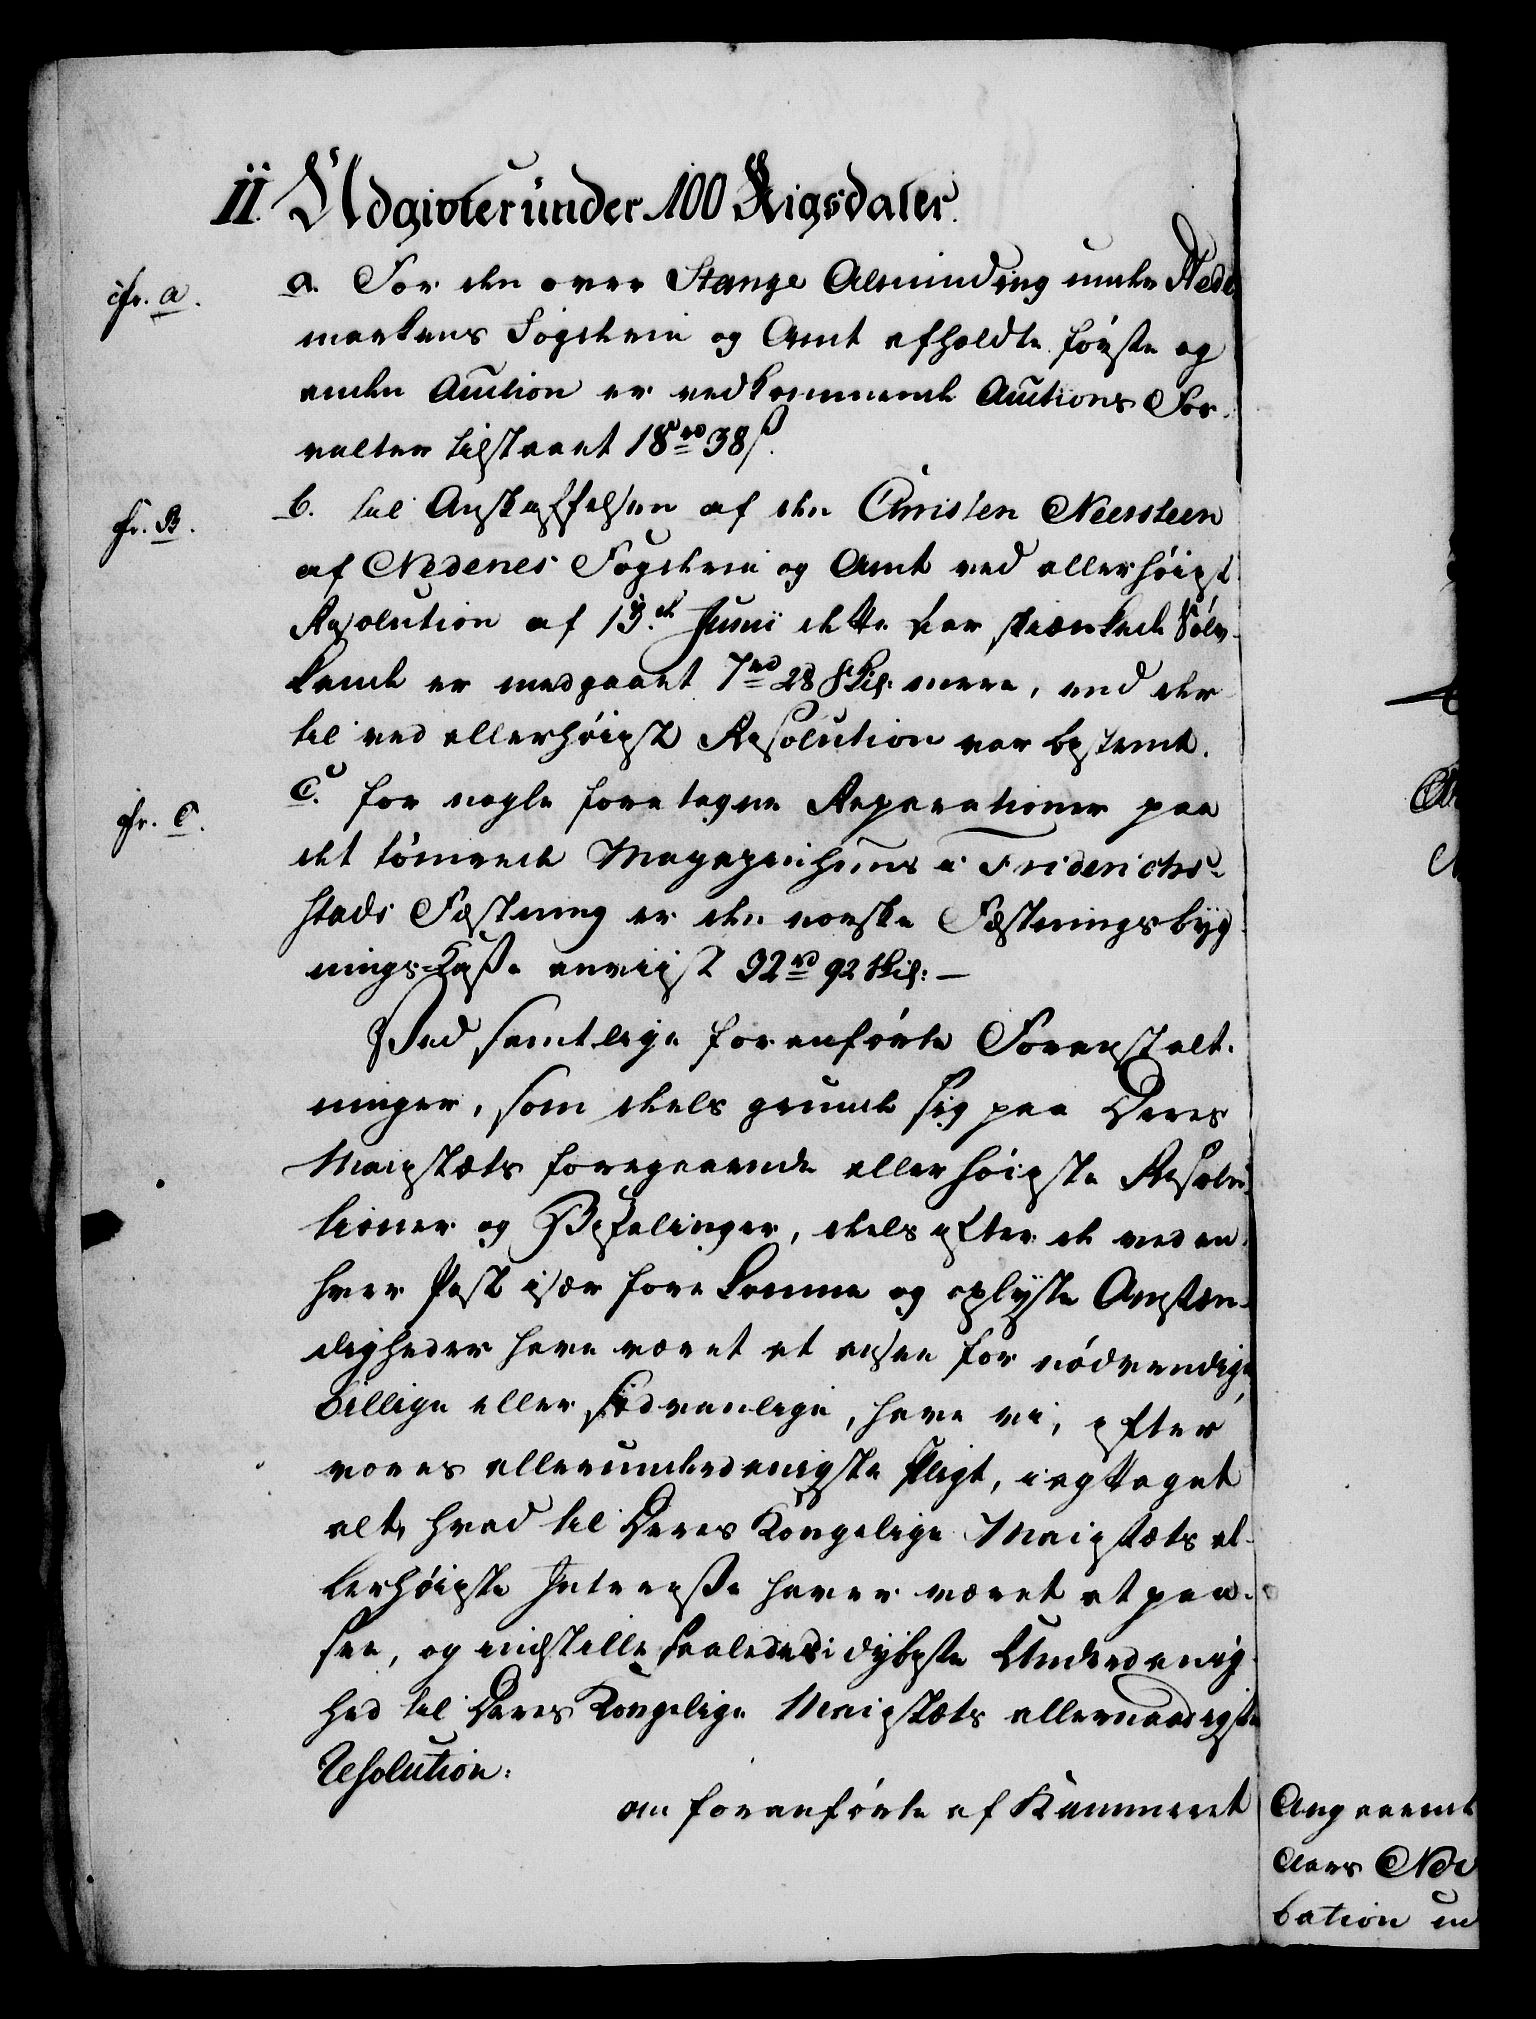 II. Udgivter under 100 Rigsdaler.
cfr. a.
a. For den over Stange Alminding under Hede
markens Fogderie og Amt afholdte første og
anden Auction er vedkommende Auctions For-
valter tilstaaet 18 rd 38 ß.
cfr. B.
b. til Anskaffelsen af den Christen Neersteen
af Nedenes Fogderie og Amt ved allerhöigst
Resolution af 13de Junii dette Aar skiænkede Sölv-
kande er medgaaet 7 rd 28 Skil: mere, end der
til ved allerhöigst Resolution var bestemt.
cfr. C.
C. for nogle foretagne Reparationer paa
det tömrede Magazinhuus i Friderichs-
stads Fæstning er den norske Fæstningsbyg
nings-Casse anviist 32 rd 92 Skil: —
Ved samtlige foranförte Foranstalt-
ninger, som deels grunde sig paa Deres
Maiestæts foregaaende allerhöieste Resolu-
tioner og Befalinger, deels efter de ved en-
hver Post især forekomne og oplyste Omstæn-
digheder have været at ansee for nödvendige,
billige eller sædvanlige, have vi, efter
vores allerunderdanigste Pligt, iagttaget
alt, hvad til Deres Kongelige Maiestæts al-
lerhöieste Interesse haver været at paa-
see, og indstille saaledes i dybeste Underdanig-
hed til Deres Kongelige Maiestæts allernaadigste
Resolution:
om foranförte af Kammeret
Angaaende
Aars Nov
bation un